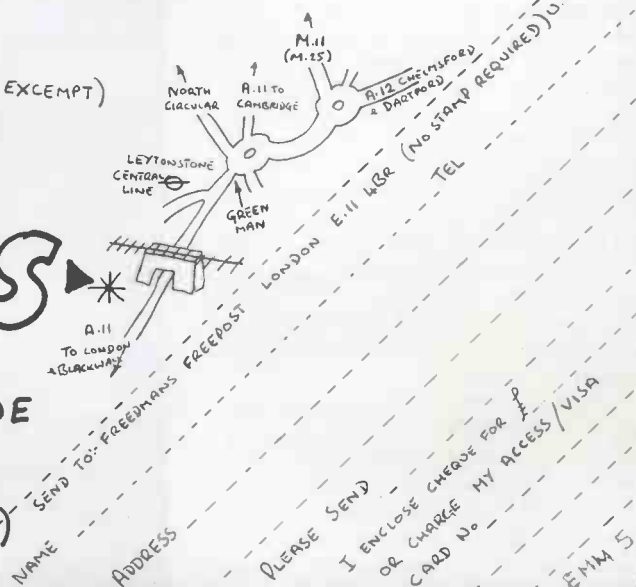 M.11
(M.25)
EXCEMPT)
NORTH
CIRCULAR
A.11 TO
CAMBRIDGE
A.12 CHELMSFORD
& DARTFORD
LEYTONSTONE
CENTRAL
LINE
GREEN
MAN
S
A.11
TO LONDON
& BLACKWALL
DE
)
SEND TO:- FREEDMANS FREEPOST LONDON E.11 4BR (NO STAMP REQUIRED) U.
NAME
TEL
ADDRESS
PLEASE SEND
I ENCLOSE CHEQUE FOR £
OR CHARGE MY ACCESS/VISA
CARD No
EMM 5